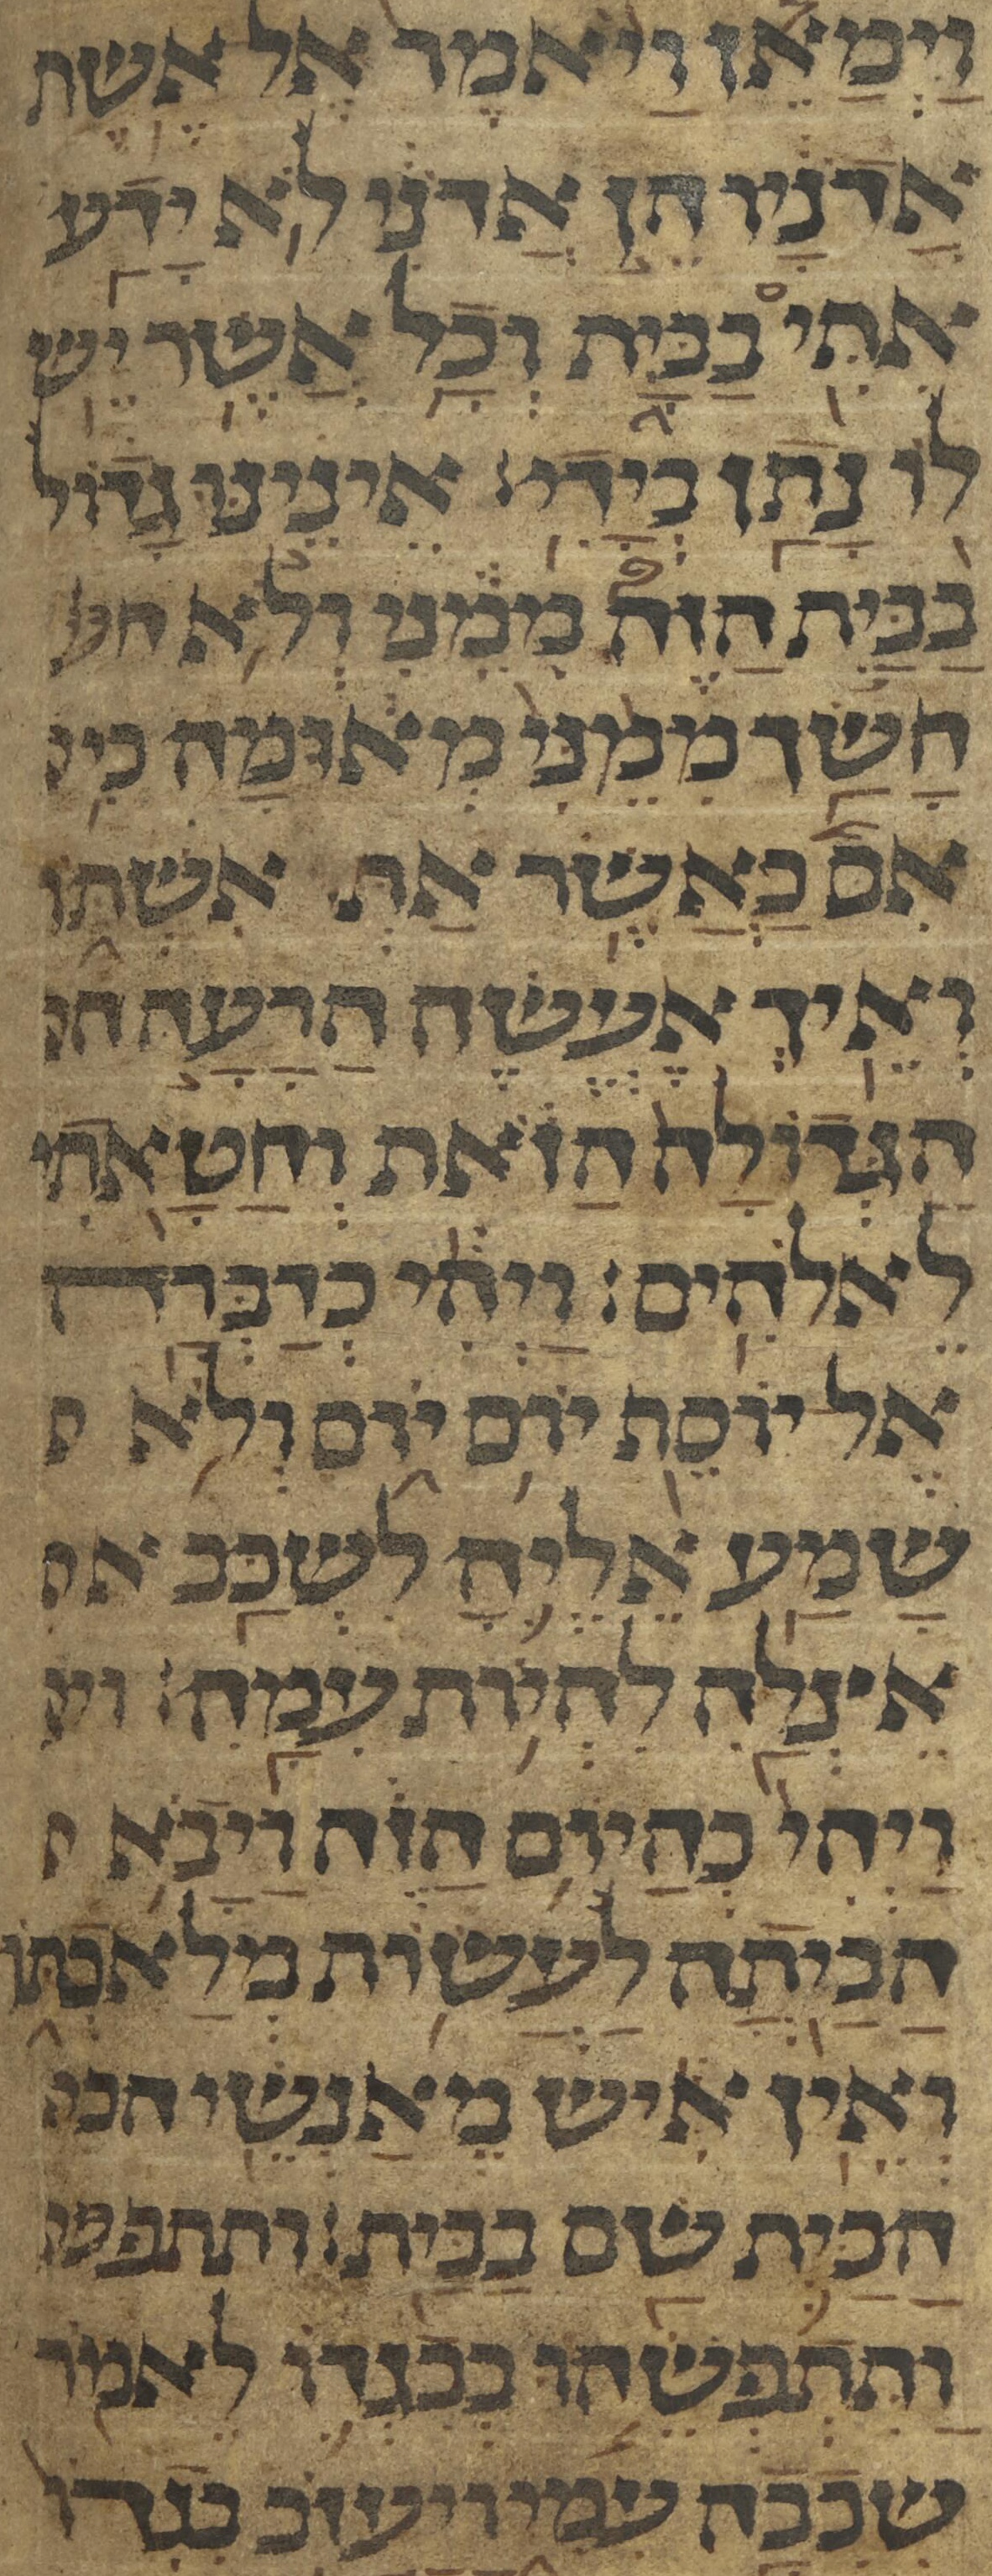 וַיְמָאֵן וַיֹּאמֶר אֶל אֵשֶׁת
אֲדֹנָיו הֵן אֲדֹנִי לֹא יָדַע
אִתִּי בַּבָּיִת וְכָל אֲשֶׁר יֶשׁ
לוֹ נָתַן בְּיָדִי׃ אֵינֶנּוּ גָדוֹל
בַּבַּיִת הַזֶּה מִמֶּנִּי וְלֹא
חָשַׂךְ מִמֶּנִּי מְאוּמָה כִּי
אִם בַּאֲשֶׁר אַתְּ אִשְׁתּוֹ
וְאֵיךְ אֶעֱשֶׂה הָרָעָה
הַגְּדוֹלָה הַזֹּאת וְחָטָאתִי
לֵאלֹהִים׃ וַיְהִי כְּדַבְּרָהּ
אֶל יוֹסֵף יוֹם יוֹם וְלֹא
שָׁמַע אֵלֶיהָ לִשְׁכַּב
אֶצְלָהּ לִהְיוֹת עִמָּהּ׃ וי
וַיְהִי כְּהַיּוֹם הַזֶּה וַיָּבֹא
הַבַּיְתָה לַעֲשׂוֹת מְלַאכְתּוֹ
וְאֵין אִישׁ מֵאַנְשֵׁי הבי
הַבַּיִת שָׁם בַּבָּיִת׃ ותתפש
וַתִּתְפְּשֵׂהוּ בְּבִגְדוֹ לֵאמֹר
שִׁכְבָה עִמִּי וַיַּעֲזֹב בִּגְדוֹ